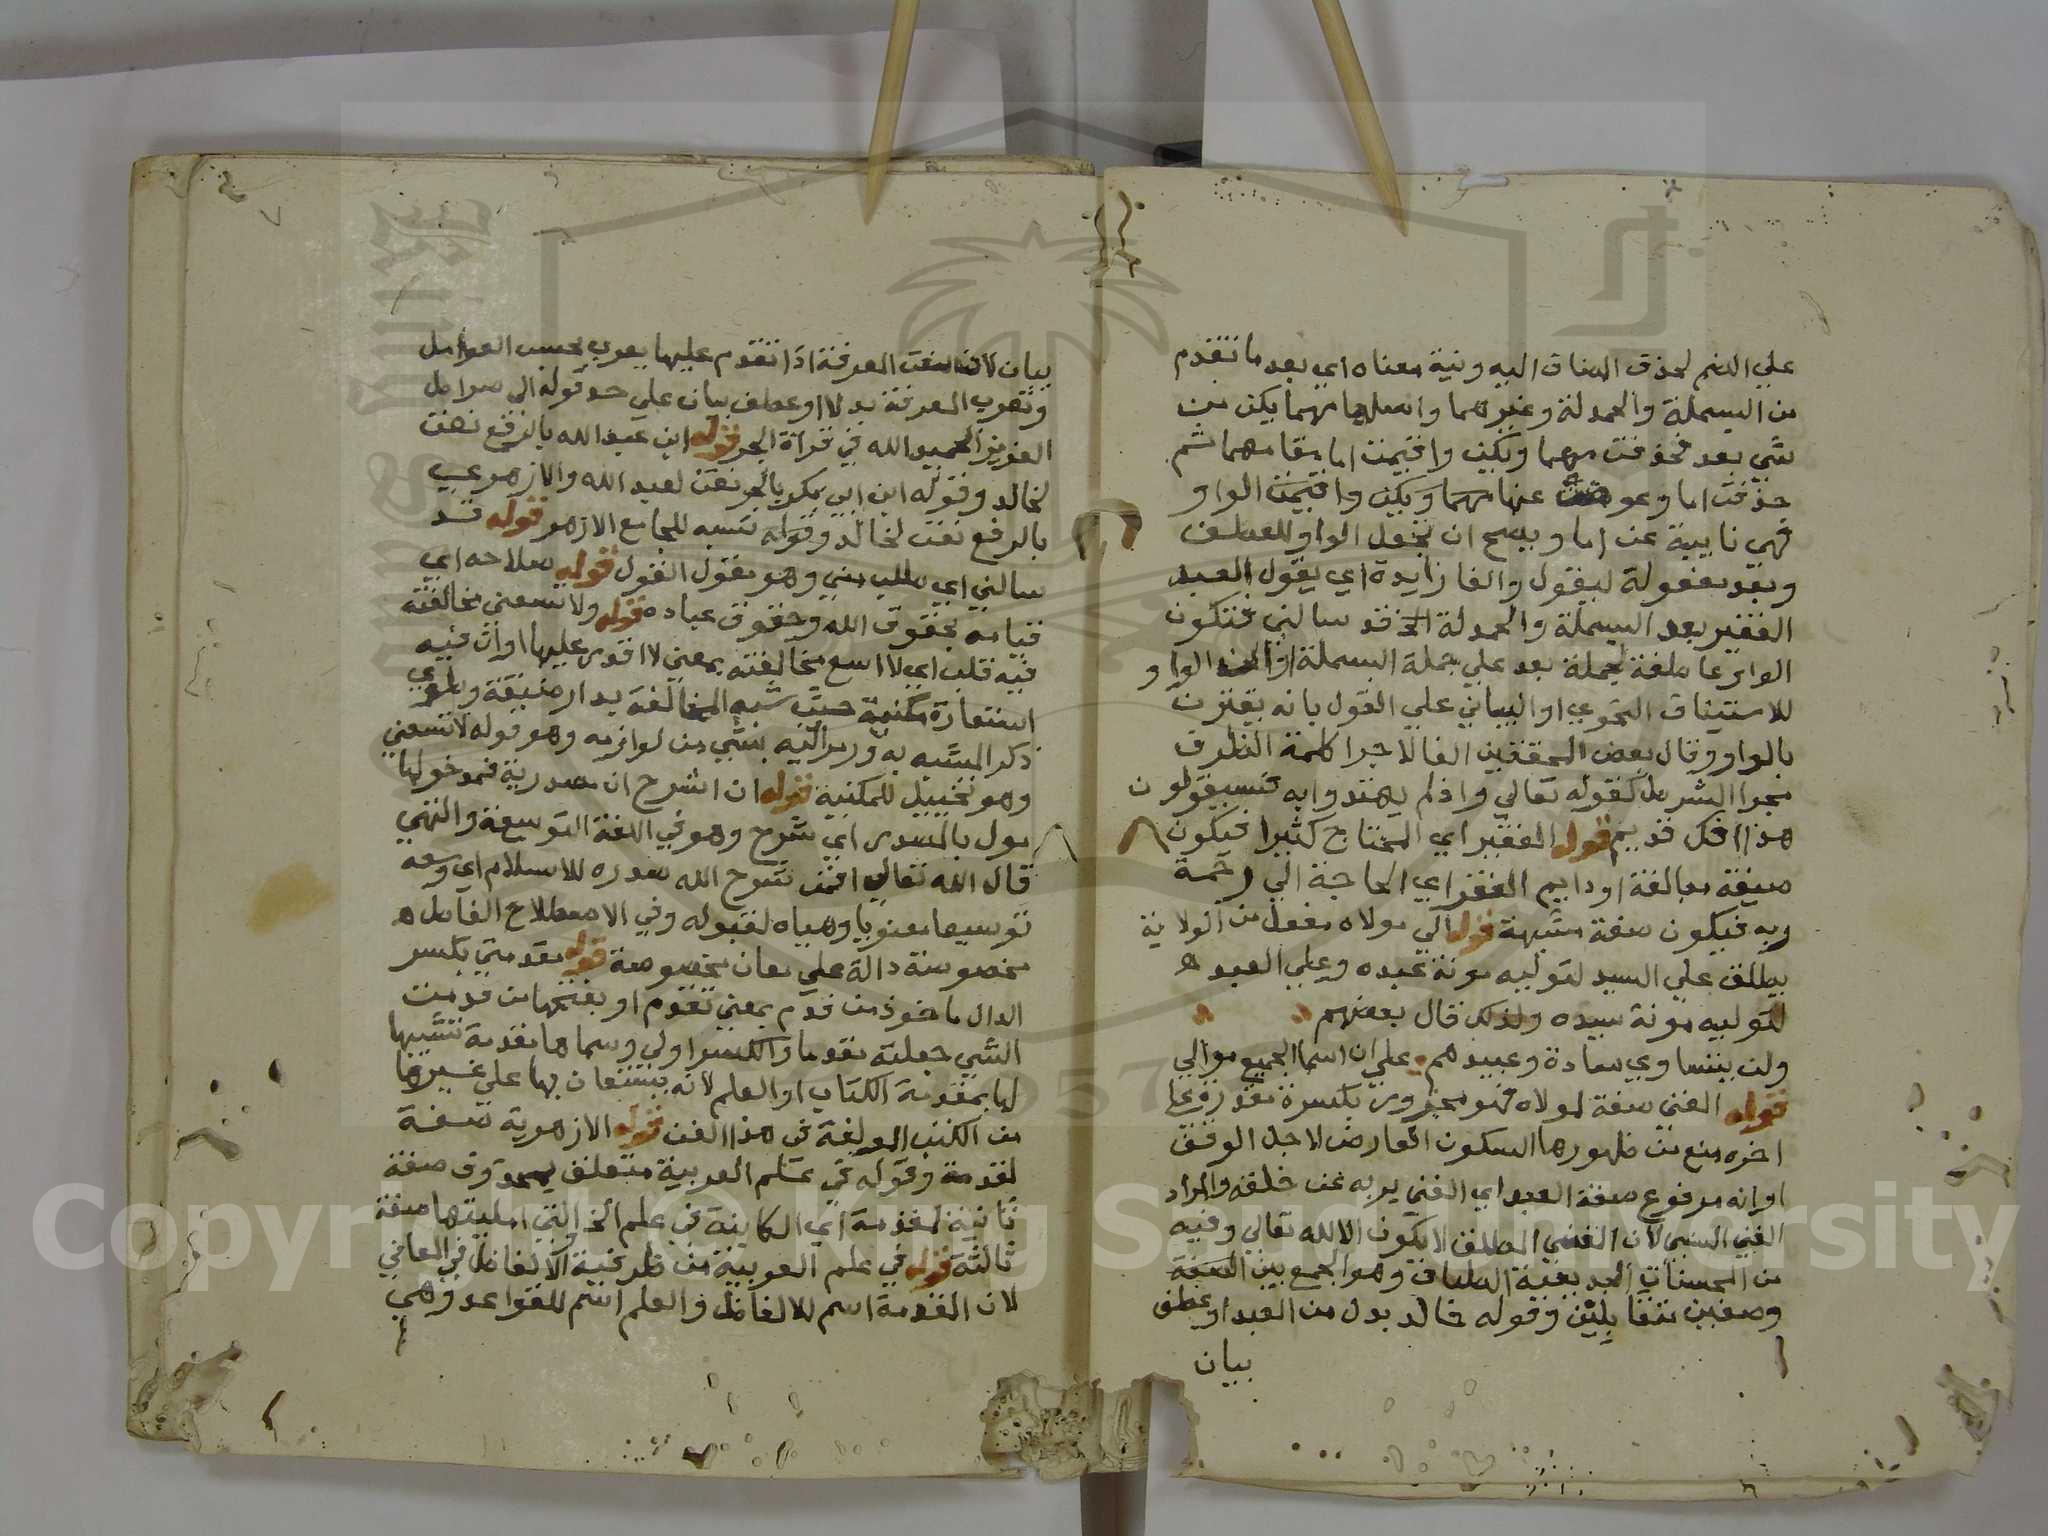 علي الضم لحذف المضاف اليه ونية معناه اي بعد ما تقدم
من البسملة والحمدلة وغيرهما واصلها مهما يكن من
شي بعد فحذفت مهما ويكن واقيمت اما مقامهما ثم
حذفت اما وعوضت عنها مهما ويكن واقيمت الواو
فهي نايبة عن اما ويصح ان تجعل الواو للعطف
وبعد معمولة ليقول والفا زايدة اي يقول العبد
الفقير بعد البسملة والحمدلة الخ قد سالني فتكون
الواو عاطفة لجملة بعد علي جملة البسملة الواو
للاستيناف النحوي او البياني علي القول بانه يقترن
بالواو وقال بعض المحققين الفا لاجرا كلمة الظرف
مجرا الشرط كقوله تعالي واذ لم يهتدوا به فسيقولون
هذا افك قديم قوله الفقير اي المحتاج كثيرا فيكون
صيغة مبالغة او دايم الفقر اي الحاجة الي رحمة
ربه فيكون صفة مشبهة قوله الي مولاه مفعل من الولاية
يطلق علي السيد لتوليه مونة عبده وعلي العبد
لتوليه مونة سيده ولذلك قال بعضهم
ولن يتساوي سادة وعبيدهم علي ان اسما الجميع موالي
قوله الغني صفة لمولاه فهو مجرور بكسرة مقدرة علي
اخره منع من ظهورها السكون العارض لاجل الوقف
او انه مرفوع صفة العبد اي الغني بربه عن خلقه والمراد
الغني النسبي لان الغني المطلق لا يكون الا لله تعالي وفيه
من المحسنات البديعية الطباق وهو الجمع بين الصفة
وصفين متقابلين وقوله خالد بدل من العبد او عطف
بيان
بيان لان نعت المعرفة اذا تقدم عليها يعرب بحسب العوامل
وتعرب المعرفة بدلا او عطف بيان علي حد قوله الي صراط
العزيز الحميد الله في قراة الجر قوله ابن عبد الله بالرفع نعت
لخالد وقوله ابن ابي بكر بالجر نعت لعبد الله والازهري
بالرفع نعت لخالد وقوله نسبه للجامع الازهر قوله قد
سالني اي طلب مني وهو مقول القول قوله صلاحه اي
قيامه بحقوق الله وحقوق عباده قوله ولا تسعني مخالفته
فيه قلب اي لا اسع مخالفته بمعني لا اقدر عليها او ان فيه
استعارة مكنية حيث شبه المخالفة بدار ضيقة وطوي
ذكر المشبه به ورمز اليه بشي من لوازمه وهو قوله لا تسعني
وهو تخييل للمكنية قوله ان اشرح ان مصدرية فمدخولها
مول بالمصدر اي شرح وهو في اللغة التوسعة والتهي
قال الله تعالي افمن شرح الله صدره للاسلام اي وسعه
توسيعا معنويا وهياه لقبوله وفي الاصطلاح الفاظ
مخصوصة دالة علي معان مخصوصة قوله مقدمتي بكسر
الدال ماخوذ من قدم بمعني تقدم او بفتحها من قدمت
الشي جعلته مقدما والكسر اولي وسماها مقدمة تشبيها
لها بمقدمة الكتاب او العلم لانه يستعان بها علي غيرها
من الكتب المولفة في هذا الفن قوله الازهرية صفة
لمقدمة وقوله في علم العربية متعلق بمحذوف صفة
ثانية لمقدمة اي الكاينة في علم الخ والتي امليتها صفة
ثالثة قوله في علم العربية من ظرفية الالفاظ في المعاني
لان المقدمة اسم للالفاظ والعلم اسم للقواعد وهي
Copyright © King Saud University
1957